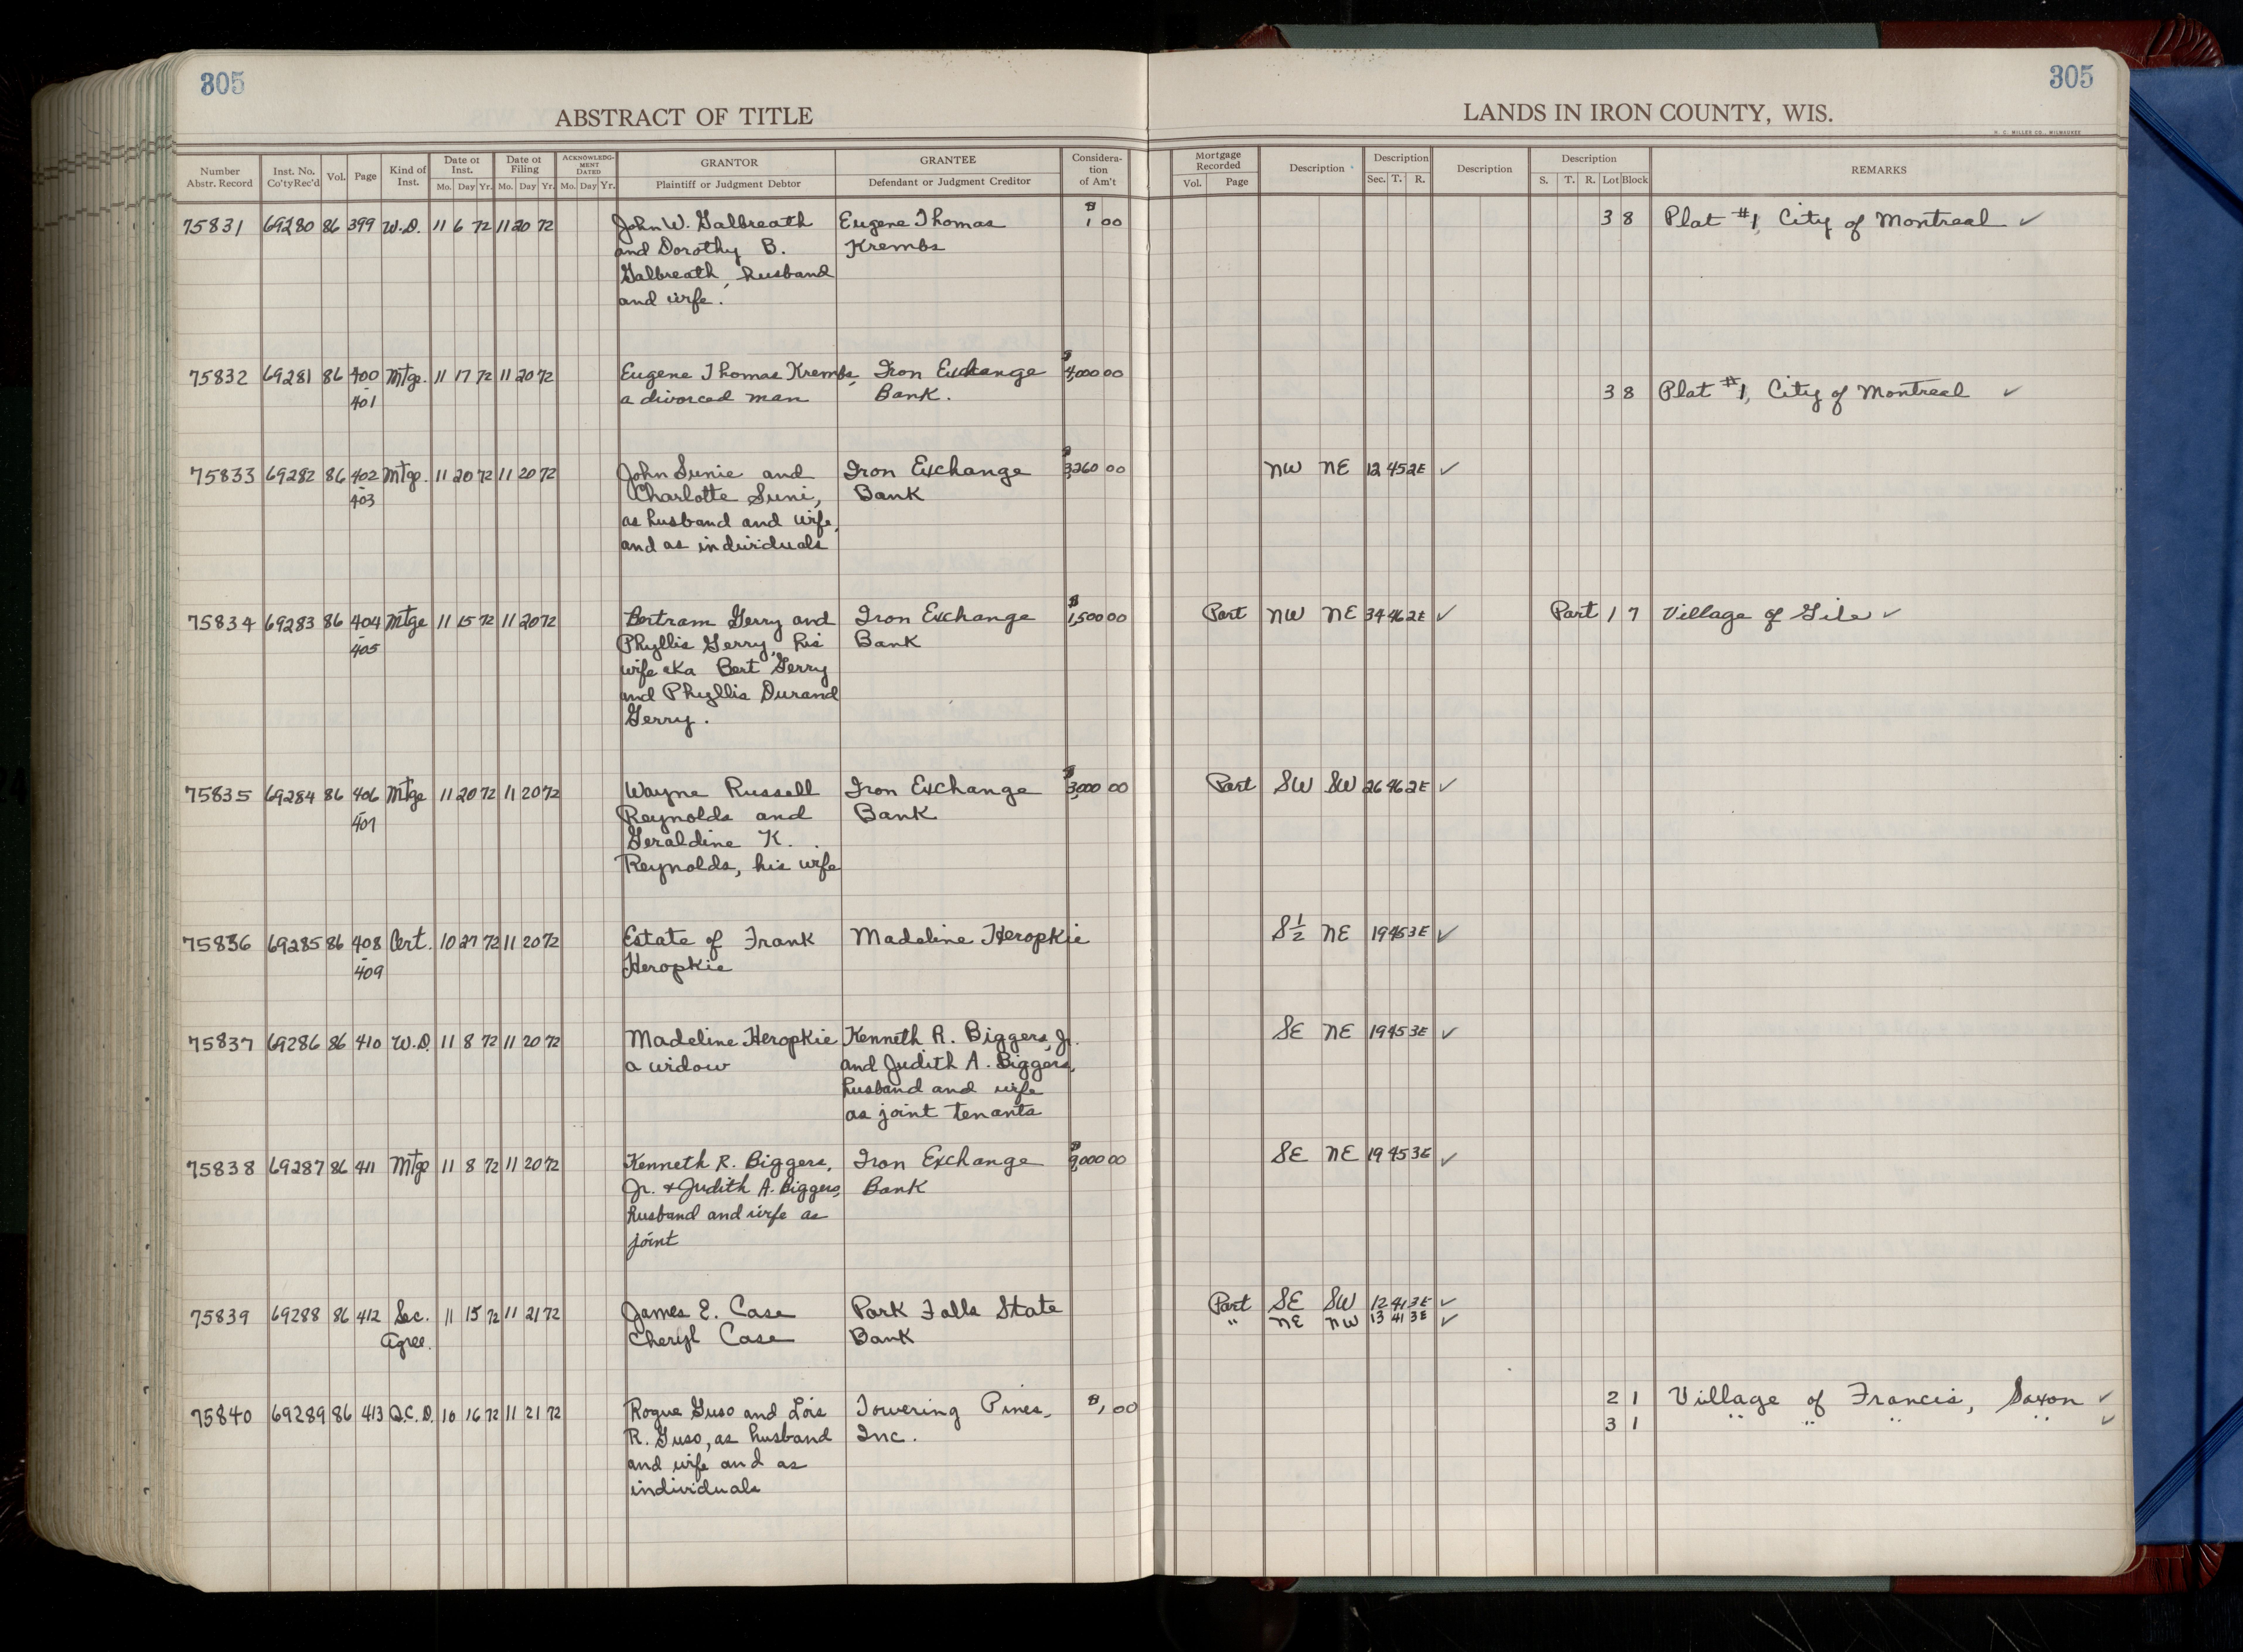 305
305
ABSTRACT OF TITLE
LANDS IN IRON COUNTY, WIS.
H. C. MILLER CO., MILWAUKEE
Number Abstr. Record Inst. No. Co'ty Rec'd Vol. Page Kind of Inst. Date of Inst. Mo. Day Yr. Date of Filing Mo. Day Yr. ACKNOWLEDGMENT DATED Mo. Day Yr. GRANTOR Plaintiff or Judgment Debtor GRANTEE Defendant or Judgment Creditor Consideration of Am't
Mortgage Recorded Vol. Page Description Description Sec. T. R. Description Description S. T. R. Lot Block REMARKS
75831 69280 86 399 W.D. 11 6 72 11 20 72 John W. Galbreath Eugene Thomas $1 00 3 8 Plat #1, City of Montreal ✓
and Dorothy B. Krembs
Galbreath, husband
and wife.
75832 69281 86 400 Mtge. 11 17 72 11 20 72 Eugene Thomas Krembs, Iron Exchange $4,000 00
- 401 a divorced man Bank. 3 8 Plat #1, City of Montreal ✓
75833 69282 86 402 Mtge. 11 20 72 11 20 72 John Sunie and Iron Exchange $3,260 00 NW NE 12 45 2E ✓
- 403 Charlotte Suni, Bank
as husband and wife,
and as individuals
75834 69283 86 404 Mtge 11 15 72 11 20 72 Bertram Gerry and Iron Exchange $1,500 00 Part NW NE 34 46 2E ✓ Part 1 7 Village of Gile ✓
- 405 Phyllis Gerry, his Bank
wife aka Bert Gerry
and Phyllis Durand
Gerry.
75835 69284 86 406 Mtge 11 20 72 11 20 72 Wayne Russell Iron Exchange $3,000 00 Part SW SW 26 46 2E ✓
- 407 Reynolds and Bank
Geraldine K.
Reynolds, his wife
75836 69285 86 408 Cert. 10 27 72 11 20 72 Estate of Frank Madeline Heropkie S½ NE 19 45 3E ✓
- 409 Heropkie
75837 69286 86 410 W.D. 11 8 72 11 20 72 Madeline Heropkie Kenneth R. Biggers, Jr. SE NE 19 45 3E ✓
a widow and Judith A. Biggers,
husband and wife
as joint tenants
75838 69287 86 411 Mtge 11 8 72 11 20 72 Kenneth R. Biggers, Iron Exchange $9,000 00 SE NE 19 45 3E ✓
Jr. & Judith A. Biggers, Bank
husband and wife as
joint
75839 69288 86 412 Sec. 11 15 72 11 21 72 James E. Case Park Falls State Part SE SW 12 41 3E ✓
Agree. Cheryl Case Bank " NE NW 13 41 3E ✓
75840 69289 86 413 Q.C.D. 10 16 72 11 21 72 Rogue Guso and Lois Towering Pines, $1, 00 2 1 Village of Francis, Saxon ✓
R. Guso, as husband Inc. 3 1 " " " " ✓
and wife and as
individuals